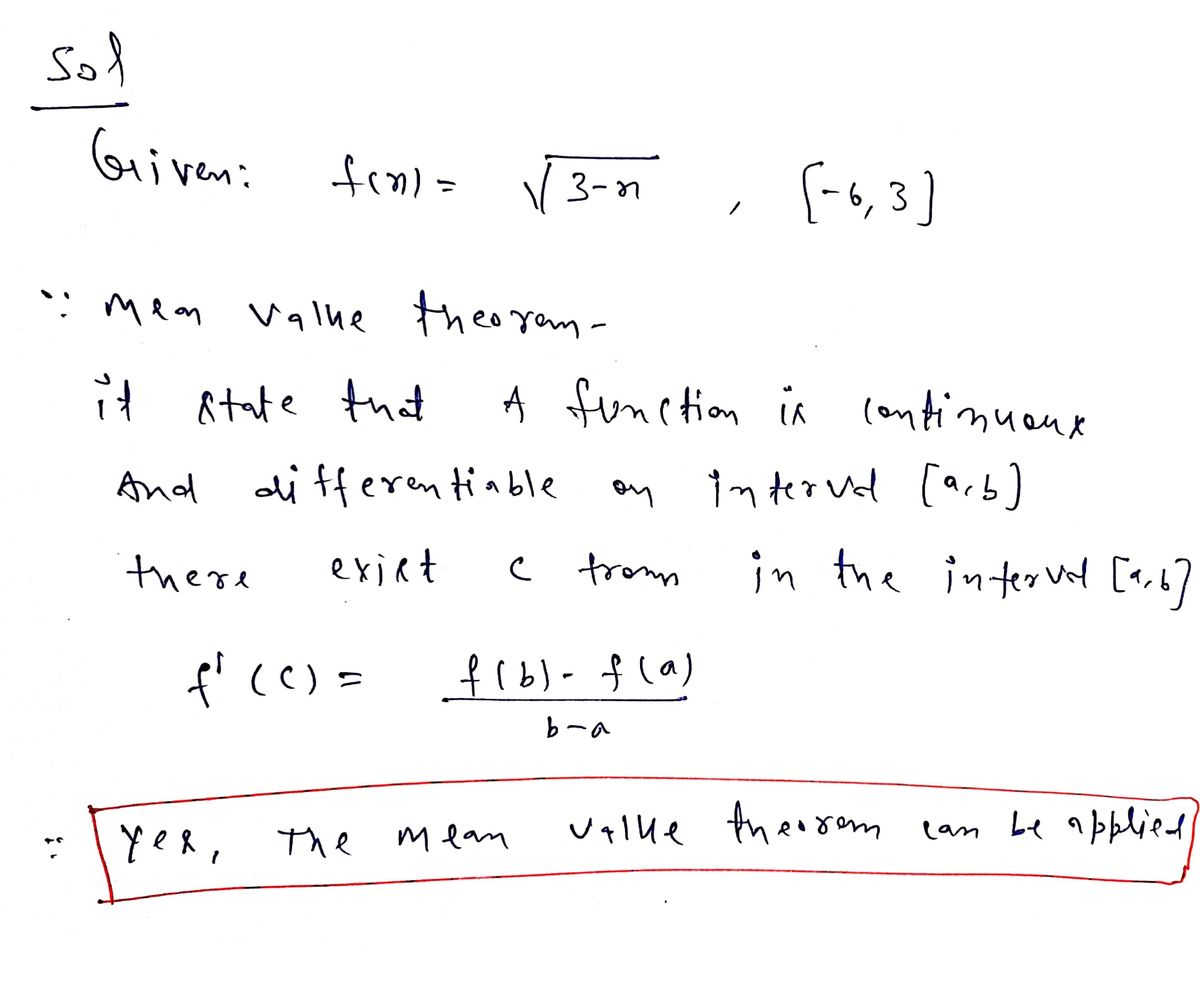 Sol
Given: f(x) = √3-x , [-6, 3]
∵ Mean value theorem-
it state that A function is continuous
And differentiable on interval [a,b]
there exist c from in the interval [a,b]
f'(c) = f(b)-f(a)
b-a
∵ Yes, The mean value theorem can be applied